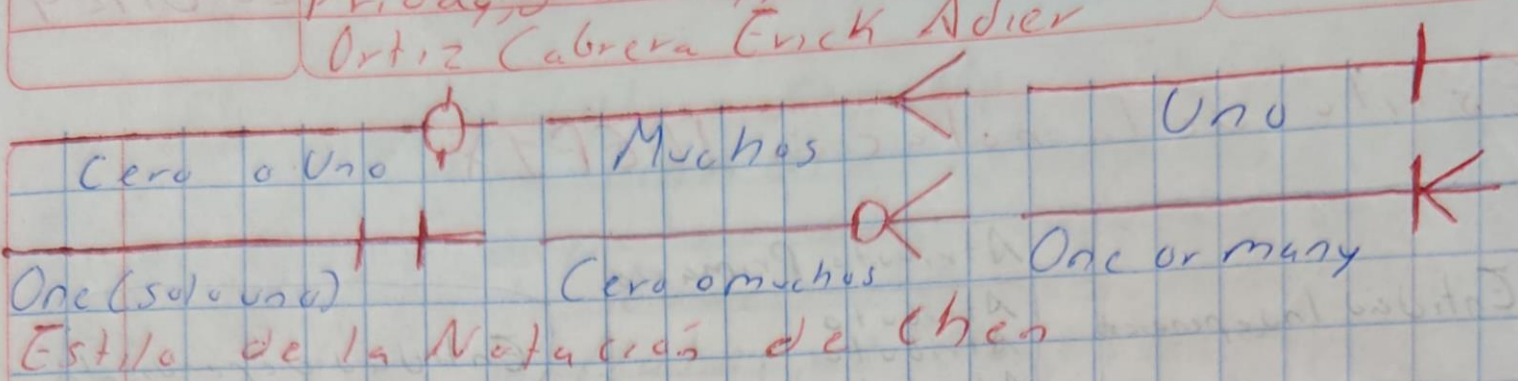 Ortiz Cabrera Erick Adier
Cero o Uno
Muchos
Uno
One (solo uno)
Cero o muchos
One or many
Estilo de la Notación de Chen